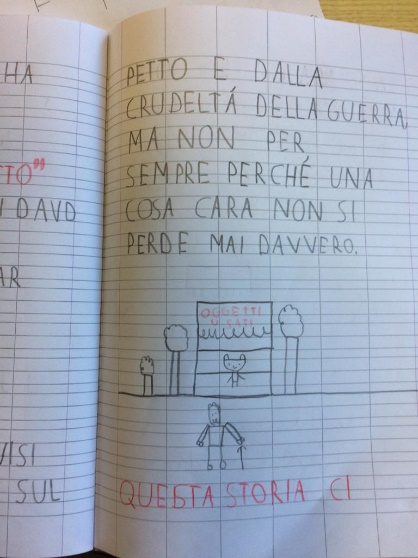 HA
TO"
DAVD
AR
VISI
SUL
PETTO E DALLA
CRUDELTÁ DELLA GUERRA,
MA NON PER
SEMPRE PERCHÉ UNA
COSA CARA NON SI
PERDE MAI DAVVERO.
OGGETTI
USATI
QUESTA STORIA CI